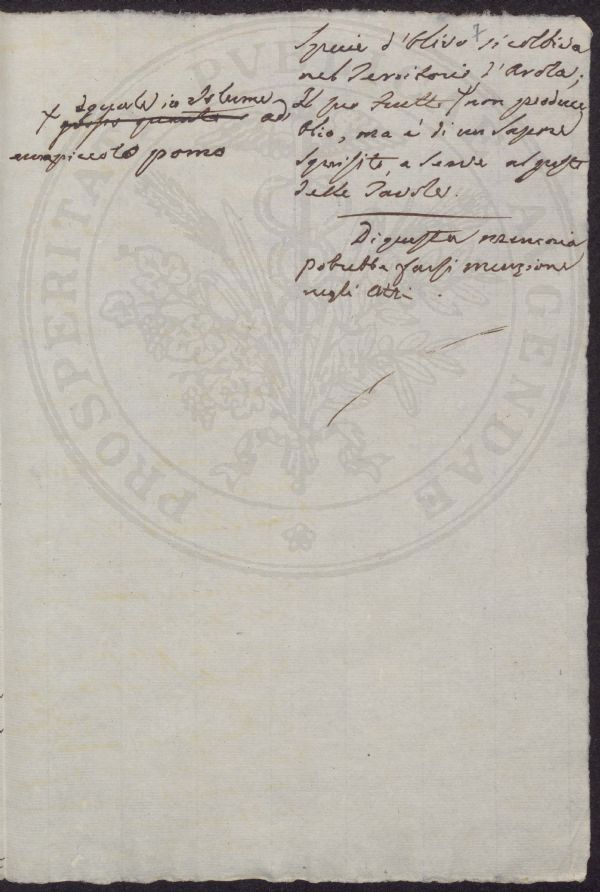 7
Specie d'Olivo si coltiva
nel Territorio d'Avola;
il suo frutto + non produce
Olio, ma è di un sapore
squisito, e serve al gusto
delle Tavole.
Di questa memoria
potrebbe farsi menzione
negli Atti.
+ eguale in volume
grosso quanto ad
un piccolo pomo
PROSPERITATI PUBLICAE AUGENDAE